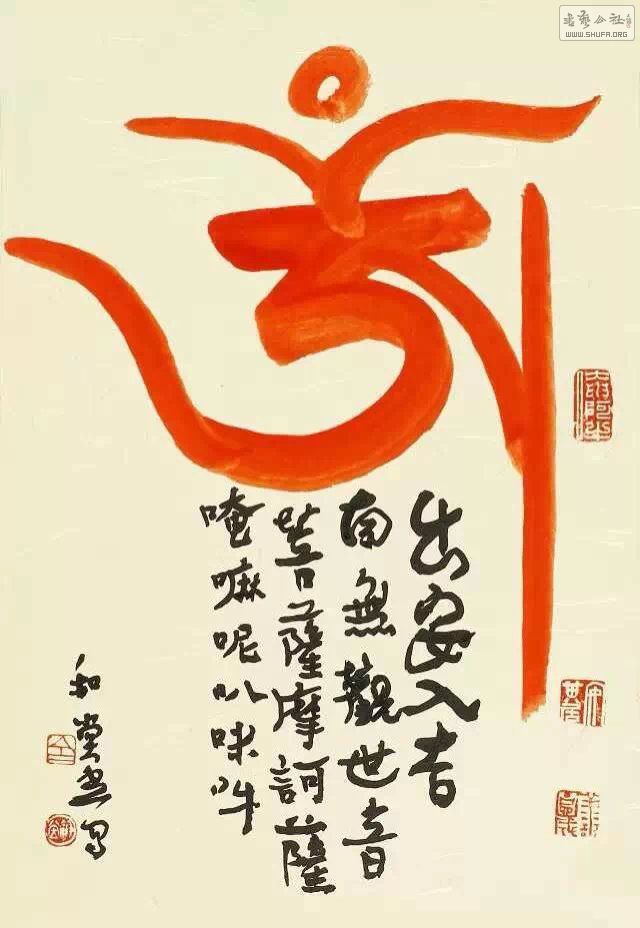 书艺公社
WWW.SHUFA.ORG
出安入吉
南無觀世音
菩薩摩訶薩
唵嘛呢叭咪吽
和堂